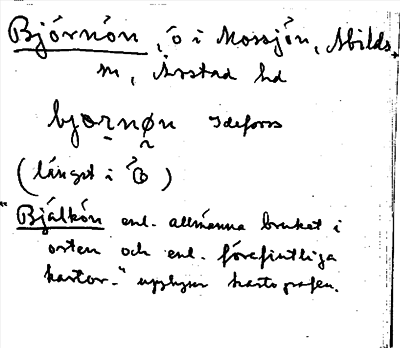 Björnön, ö i Mossjön, Abilds-
m, Årstad hd
bjœrnøn Idefors
(längst i Ö)
"Bjälkön enl. allmänna bruket i
orten och enl. förefintliga
kartor." upplyser kartografen.